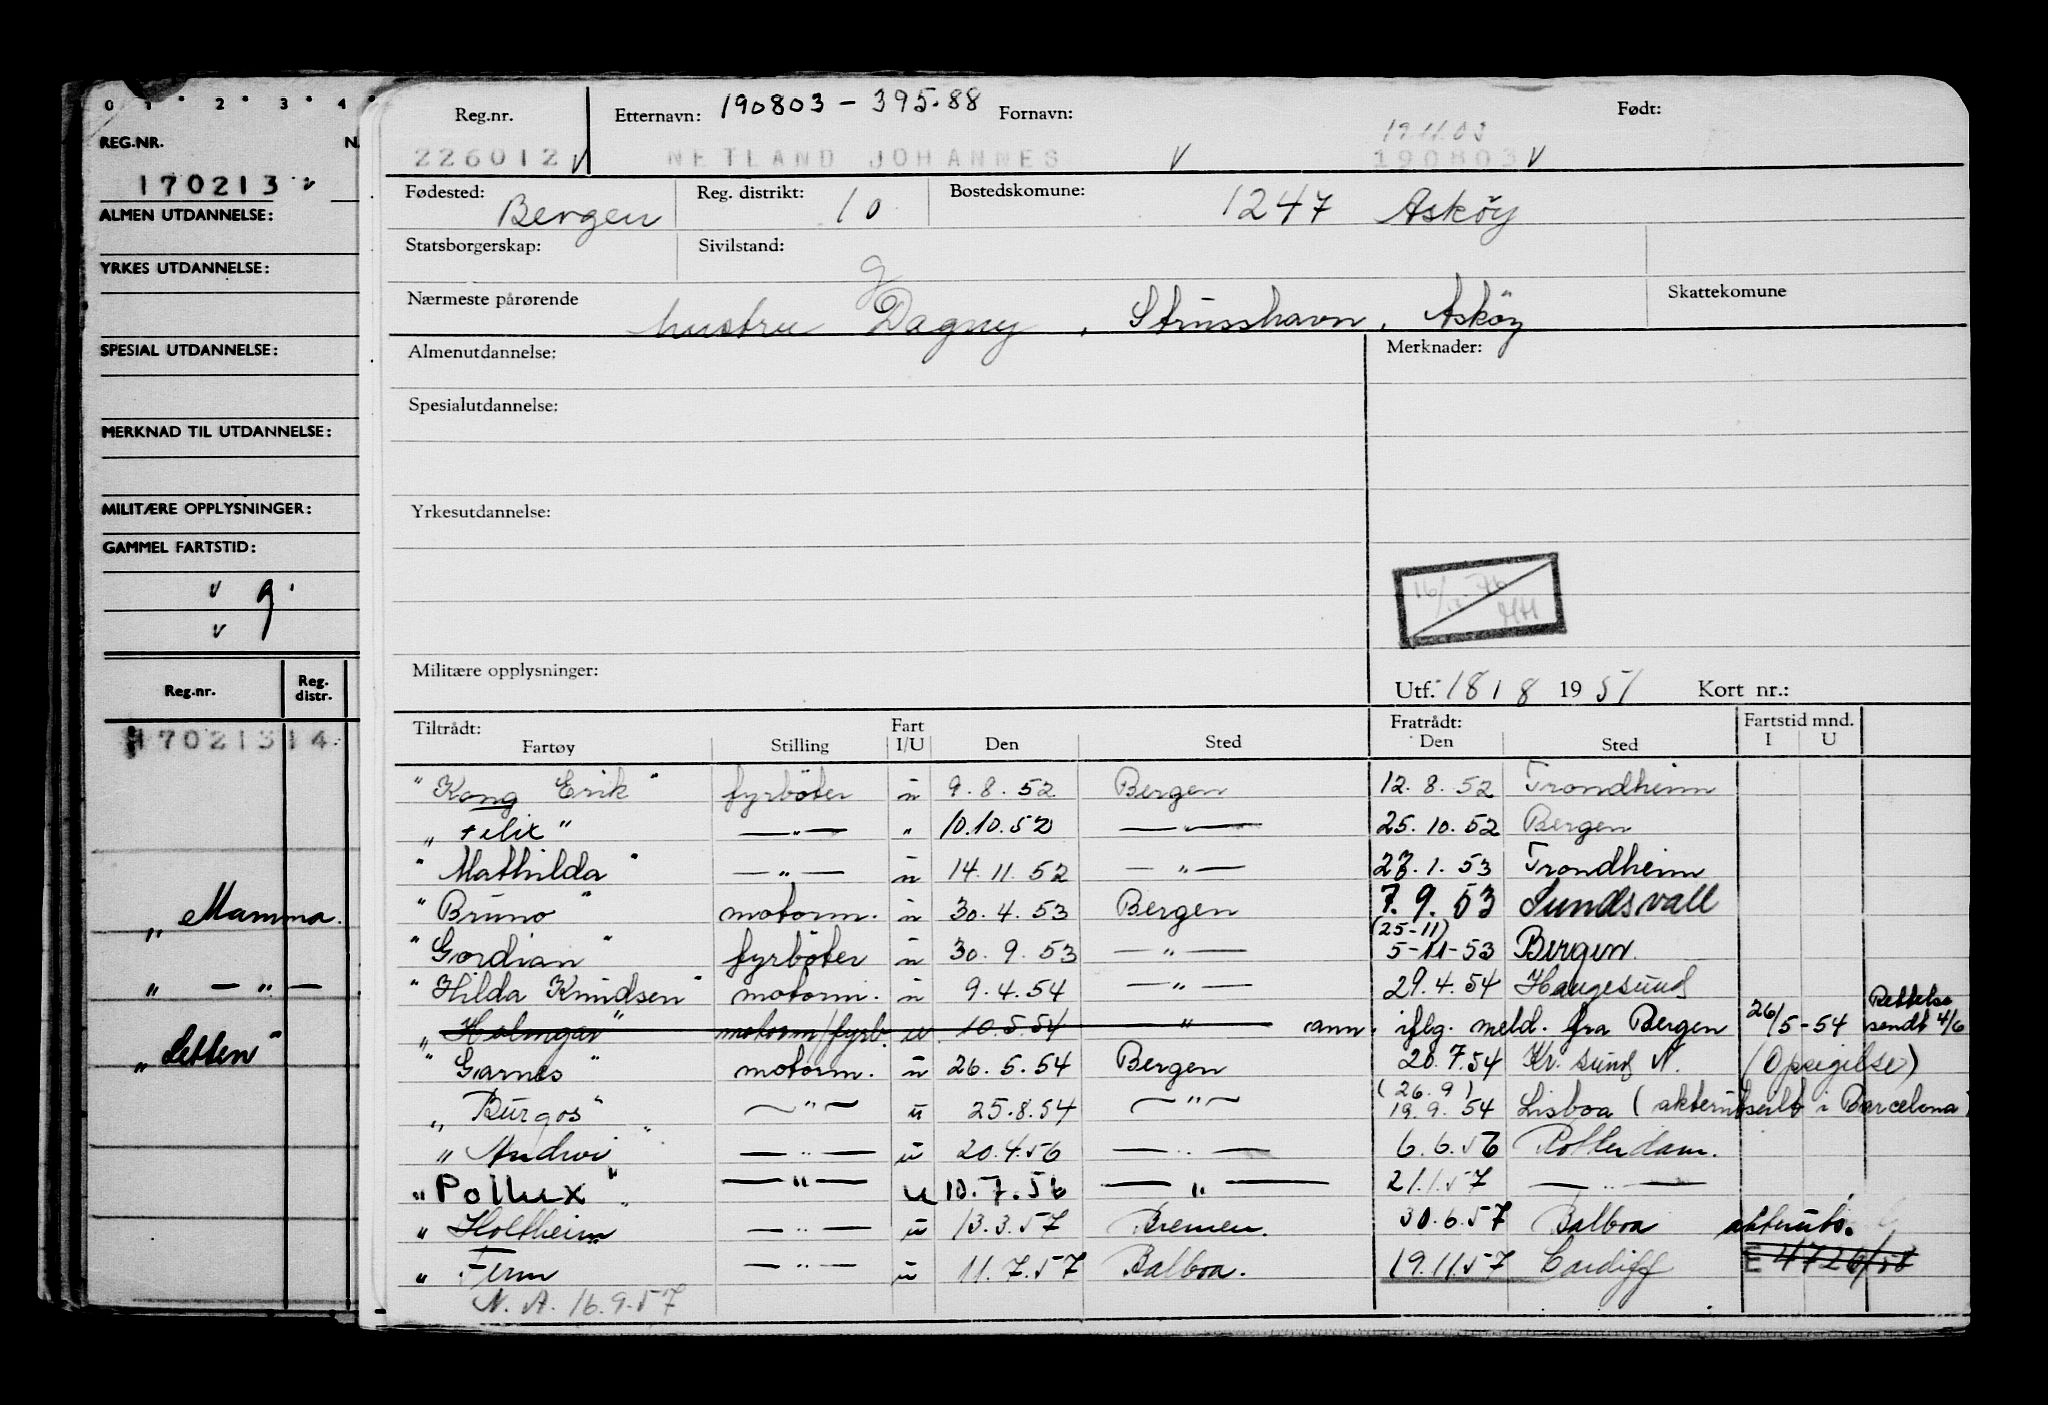 0 1 2 3 4
REG.NR. N
170213 v
ALMEN UTDANNELSE:
YRKES UTDANNELSE:
SPESIAL UTDANNELSE:
MERKNAD TIL UTDANNELSE:
MILITÆRE OPPLYSNINGER:
GAMMEL FARTSTID:
v g.
v
Reg.nr. Reg. distr.
17021314
„ Mamma
" — " —
„ Letten"
Reg.nr. Etternavn: 190803 - 395.88 Fornavn: Født:
226012 v NETLAND JOHANNES v 190803 v
Fødested: Bergen Reg. distrikt: 10 Bostedskomune: 1247 Asköy
Statsborgerskap: Sivilstand: g
Nærmeste pårørende hustru Dagny, Strusshavn, Asköy Skattekomune
Almenutdannelse: Merknader:
Spesialutdannelse:
Yrkesutdannelse:
HH
Militære opplysninger: Utf. 18 / 8 1951 Kort nr.:
Tiltrådt: Fart Fratrådt: Fartstid mnd.
Fartøy Stilling I/U Den Sted Den Sted I U
"Kong Erik" fyrböter u 9.8.52 Bergen 12.8.52 Trondheim
„Felix" —"— " 10.10.52 —"— 25.10.52 Bergen
"Mathilda" —"— u 14.11.52 —"— 23.1.53 Trondheim
"Bruno" motorm. u 30.4.53 Bergen 7.9.53 Sundsvall
(25-11)
"Gordian" fyrböter u 30.9.53 —"— 5-11-53 Bergen.
"Hilda Knudsen" motorm. u 9.4.54 —"— 29.4.54 Haugesund
„Holmgar" motorm/fyrb. u. 10.5.54 —"— ann. iflg. meld. fra Bergen 26/5-54 Rettelse sendt 4/6
"Garnes" motorm. u 26.5.54 Bergen 20.7.54 Kr. sund N. (Opsigelse)
(26.9)
„Burgos" —"— u 25.8.54 —"— 19.9.54 Lisboa (akterutseilt i Barcelona)
„Andwi" —"— u 20.4.56 —"— 6.6.56 Rotterdam.
"Pollux" —"— u 10.7.56 —"— 21.1.57 —"—
"Holtheim —"— u 13.3.57 Bremen. 30.6.57 Balboa akteruts.
" Ferm —"— u 11.7.57 Balboa. 19.11.57 Cardiff E 4726/58
N.A. 16.9.57